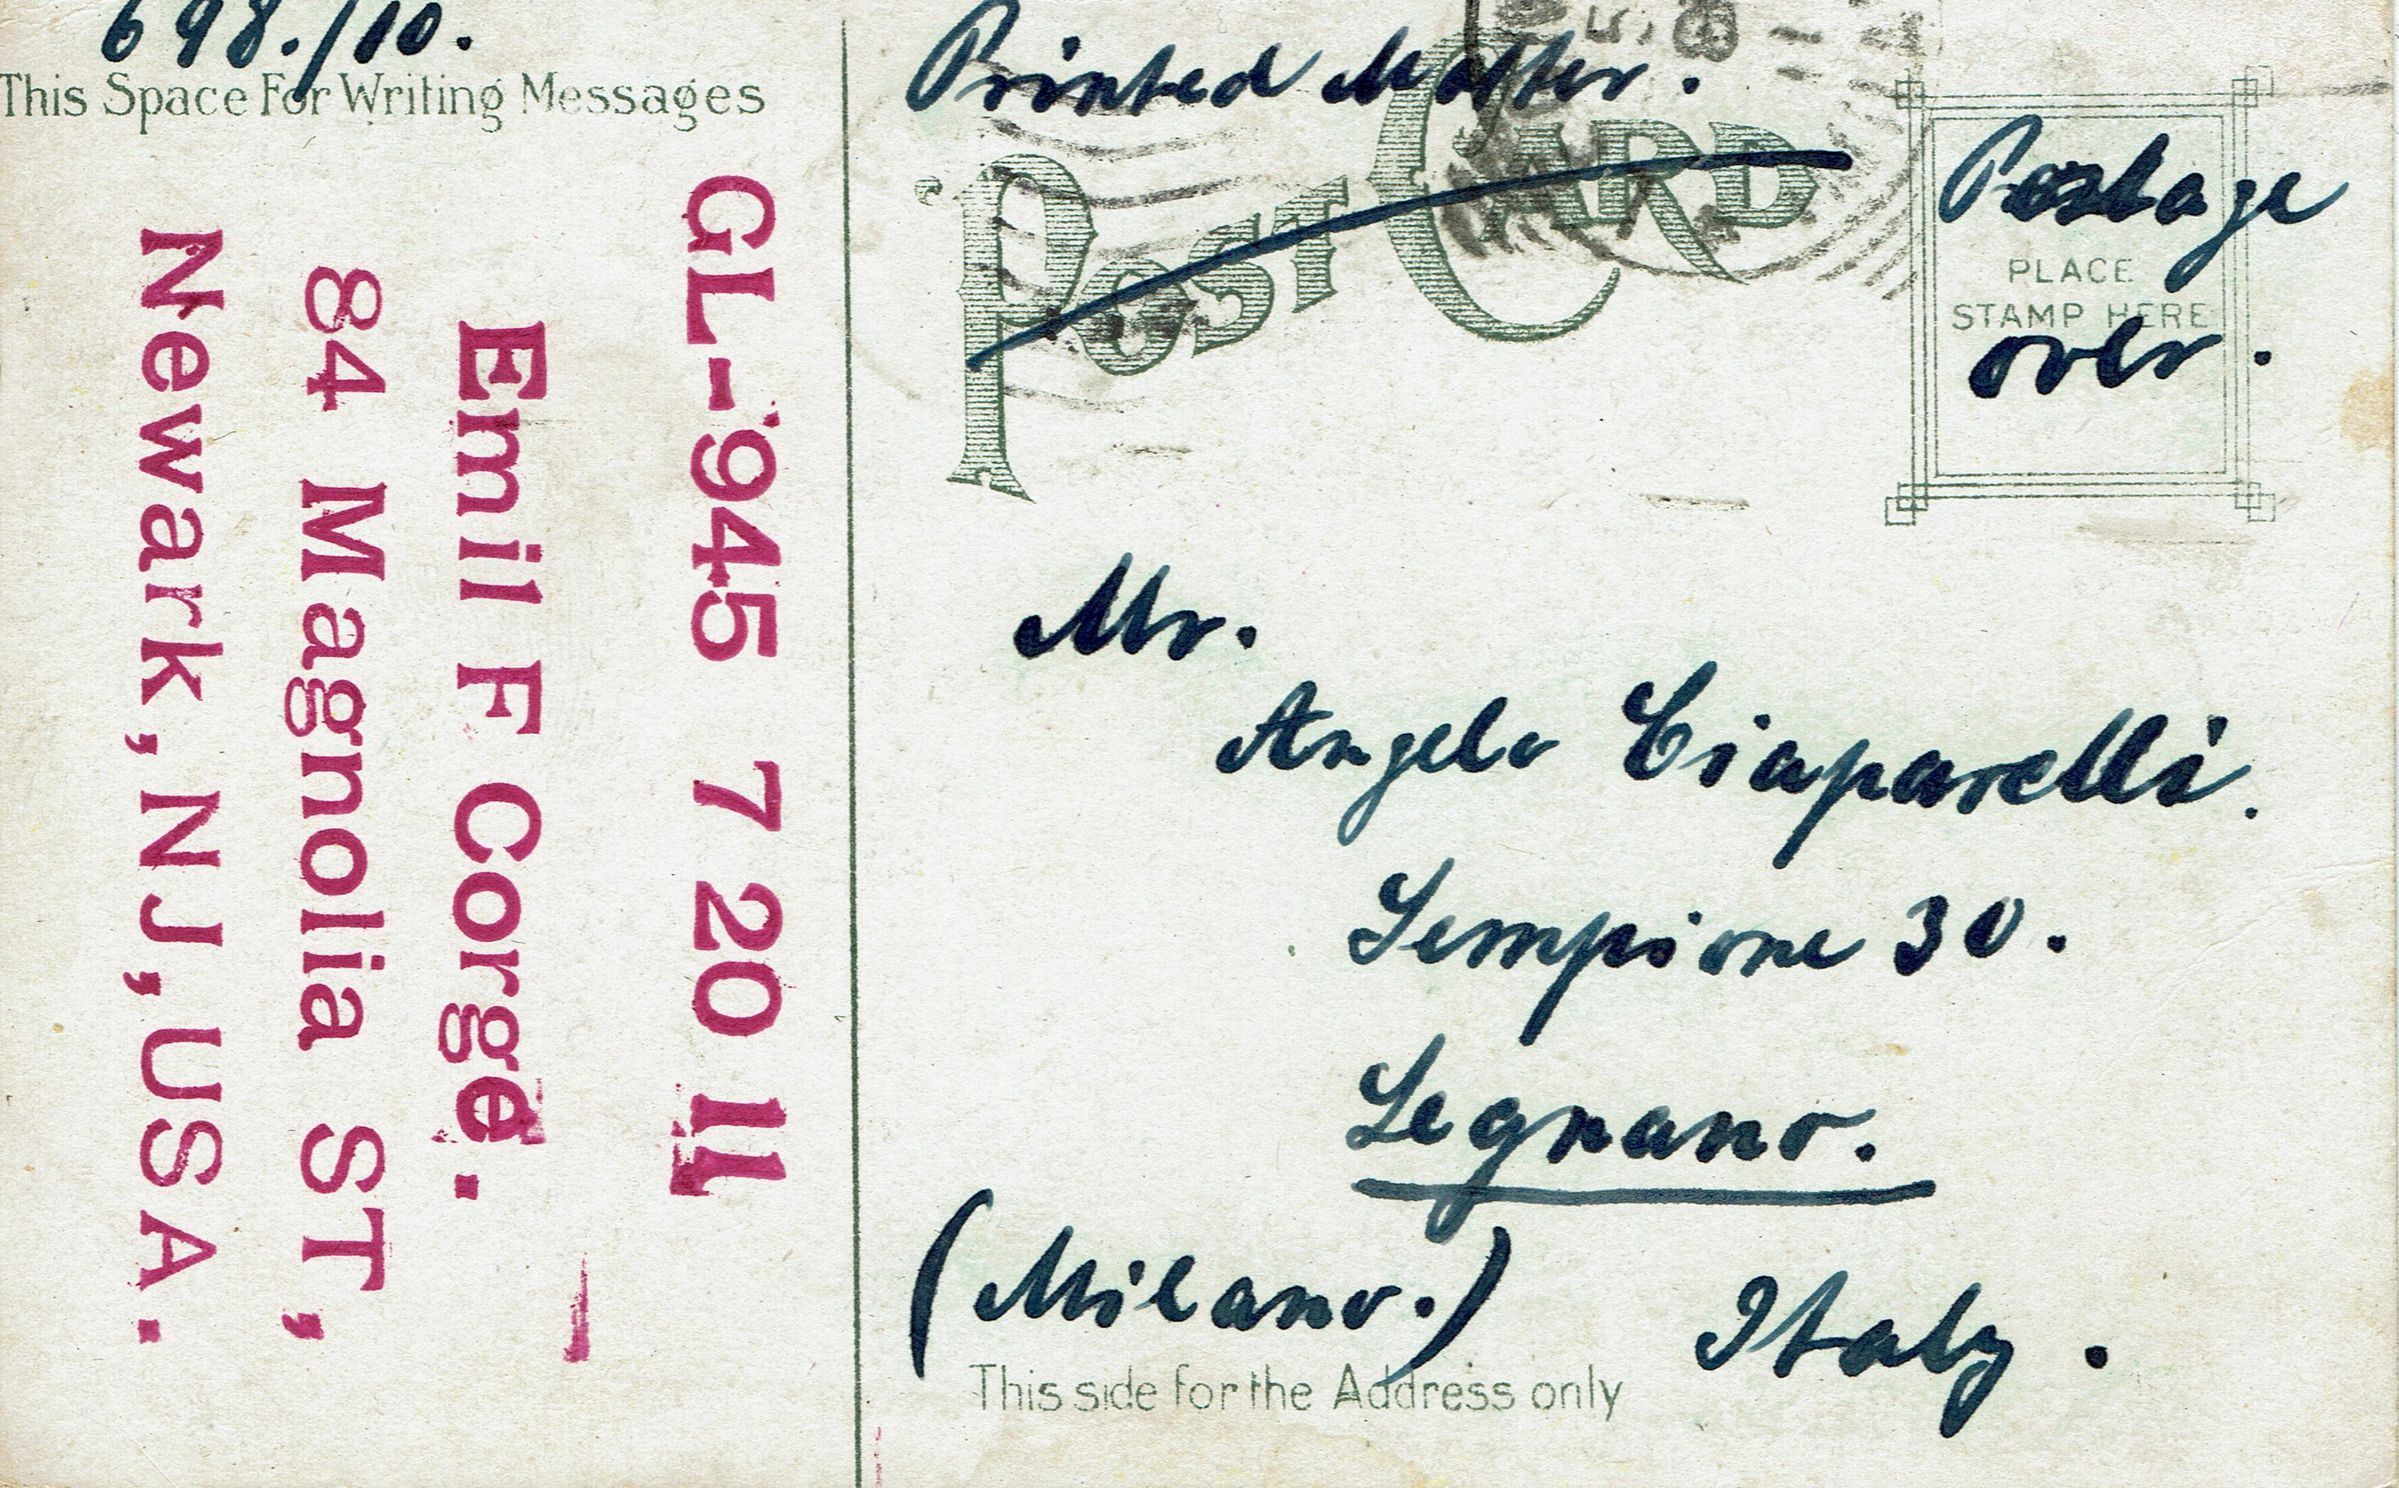 698./10.
This Space For Writing Messages
GL-945 7 20 11
Emil F Corgé.
84 Magnolia ST,
Newark, NJ, USA.
Printed Matter.
POST CARD
Postage
PLACE
STAMP HERE
over.
Mr.
Angelo Ciaparelli.
Sempione 30.
Legnano.
(Milano.) Italy.
This side for the Address only